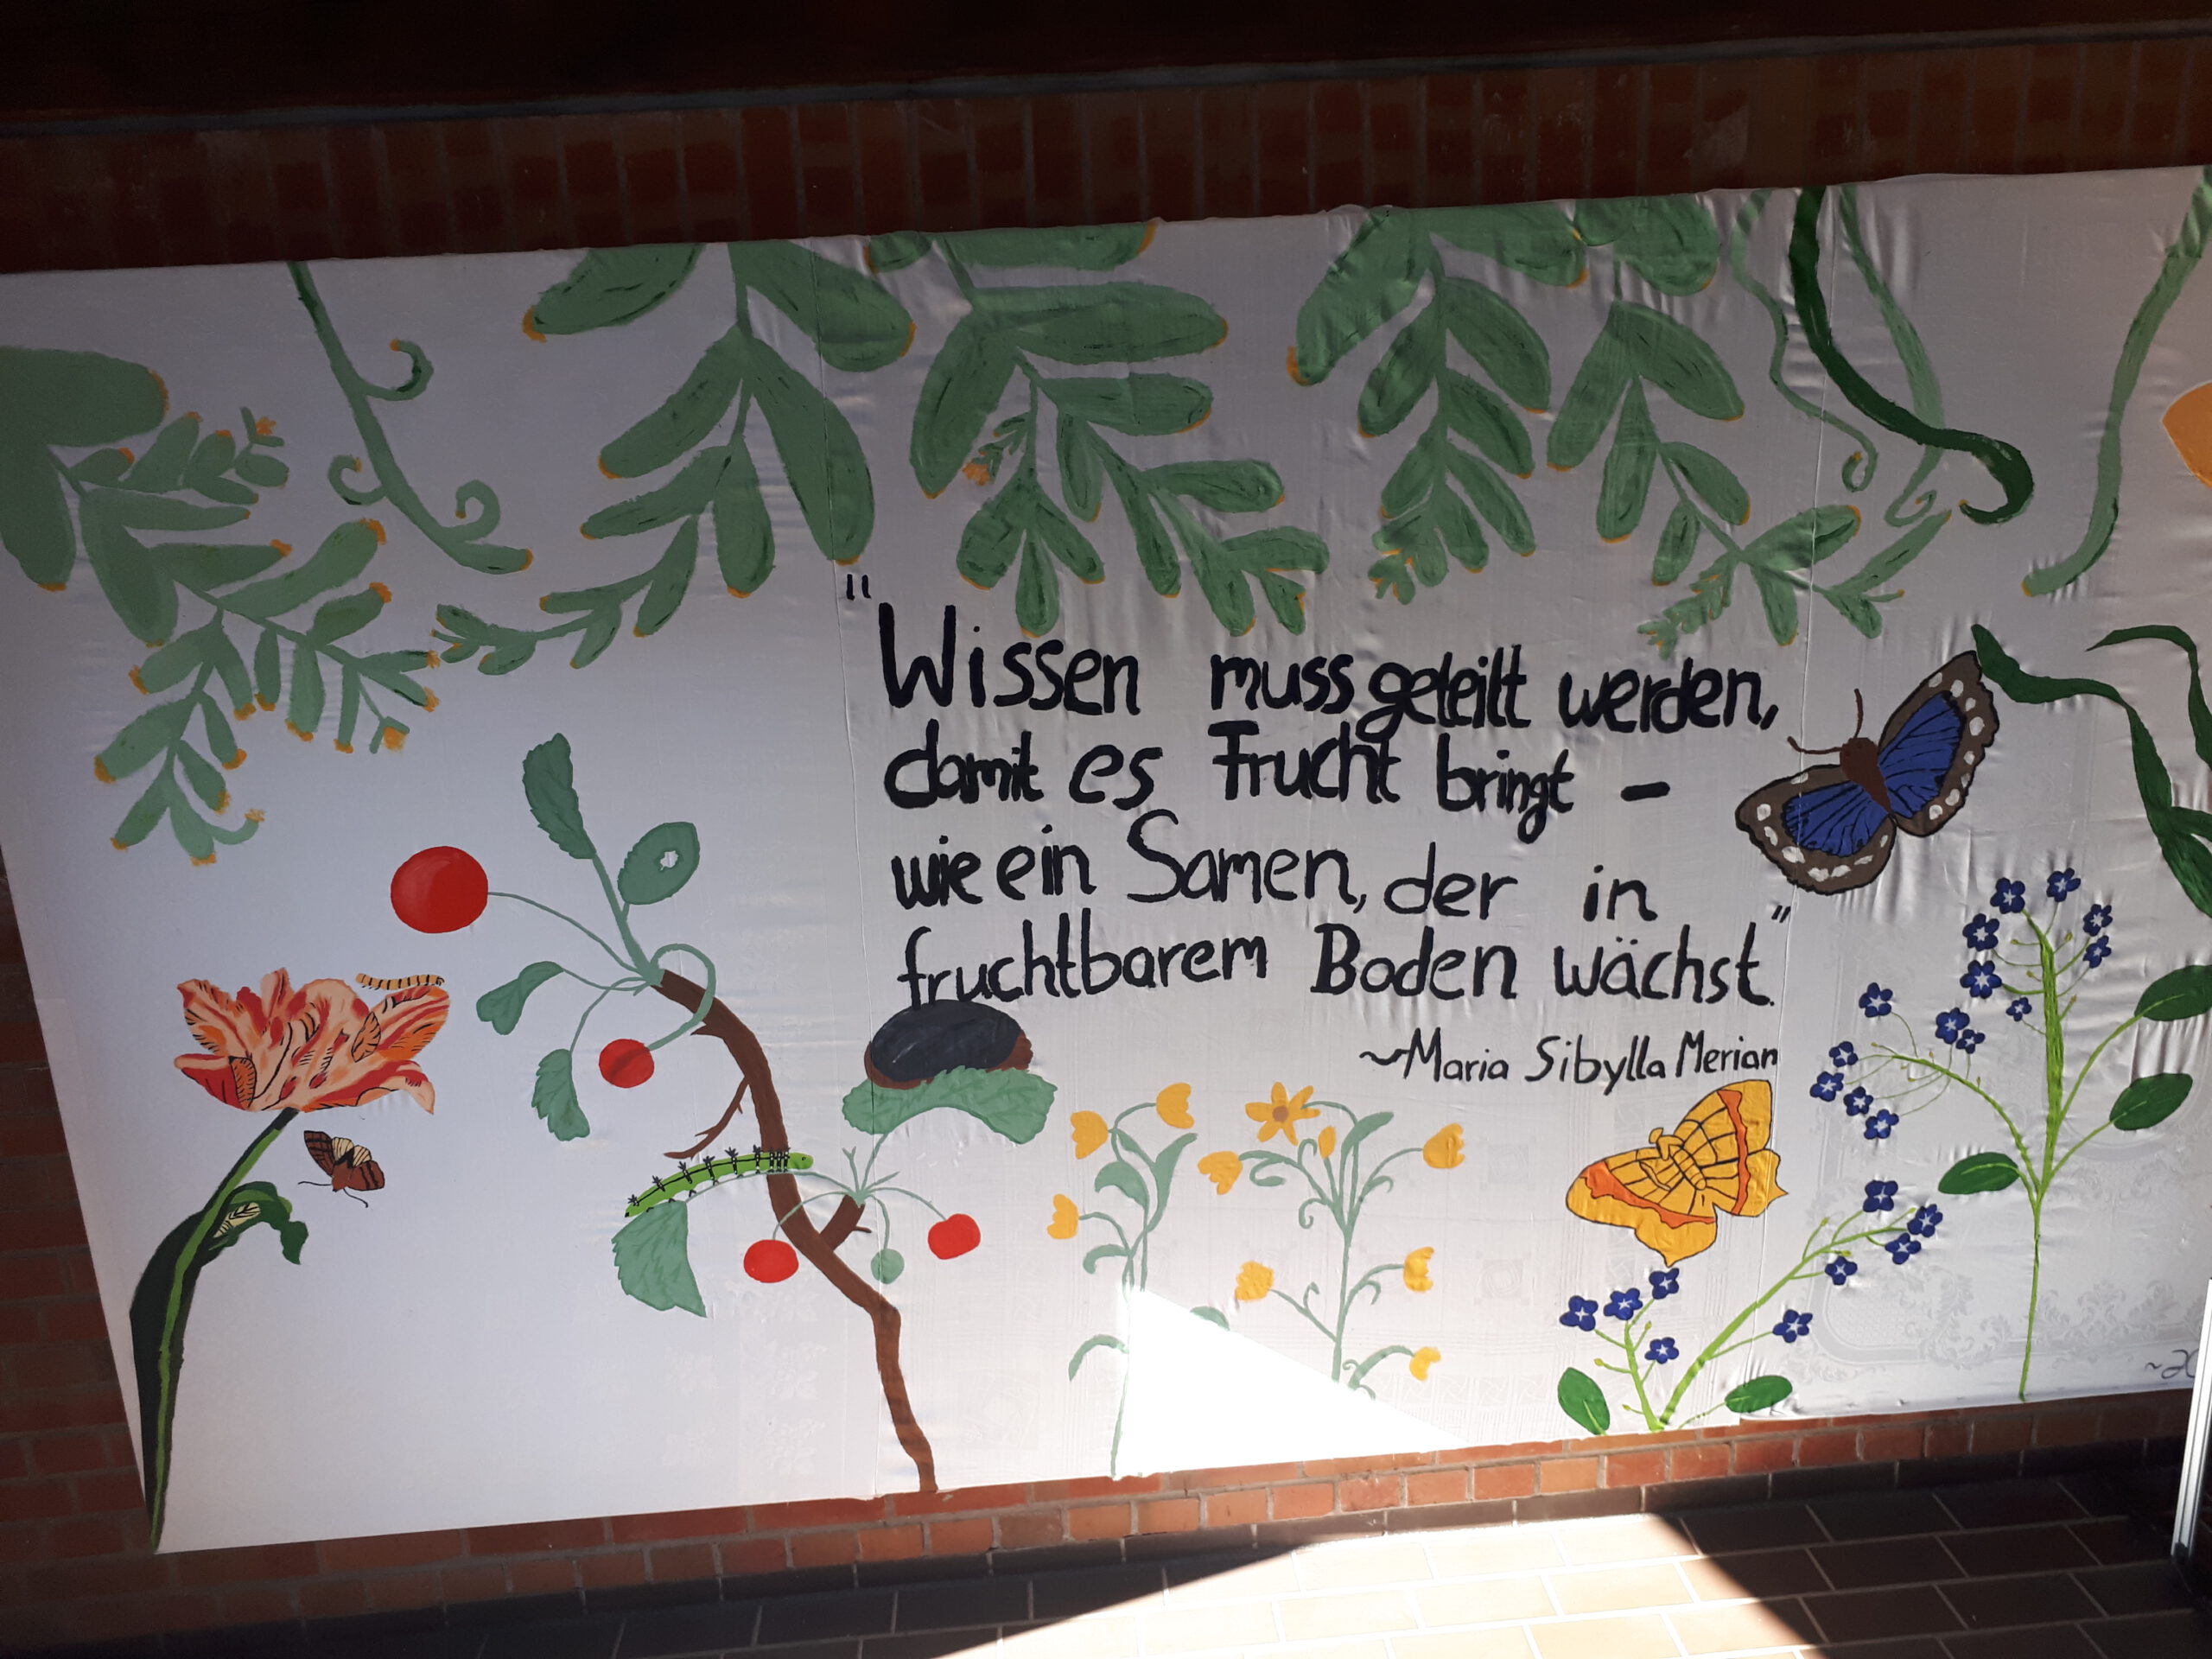 "Wissen muss geteilt werden,
damit es Frucht bringt -
wie ein Samen, der in
fruchtbarem Boden wächst."
~Maria Sibylla Merian